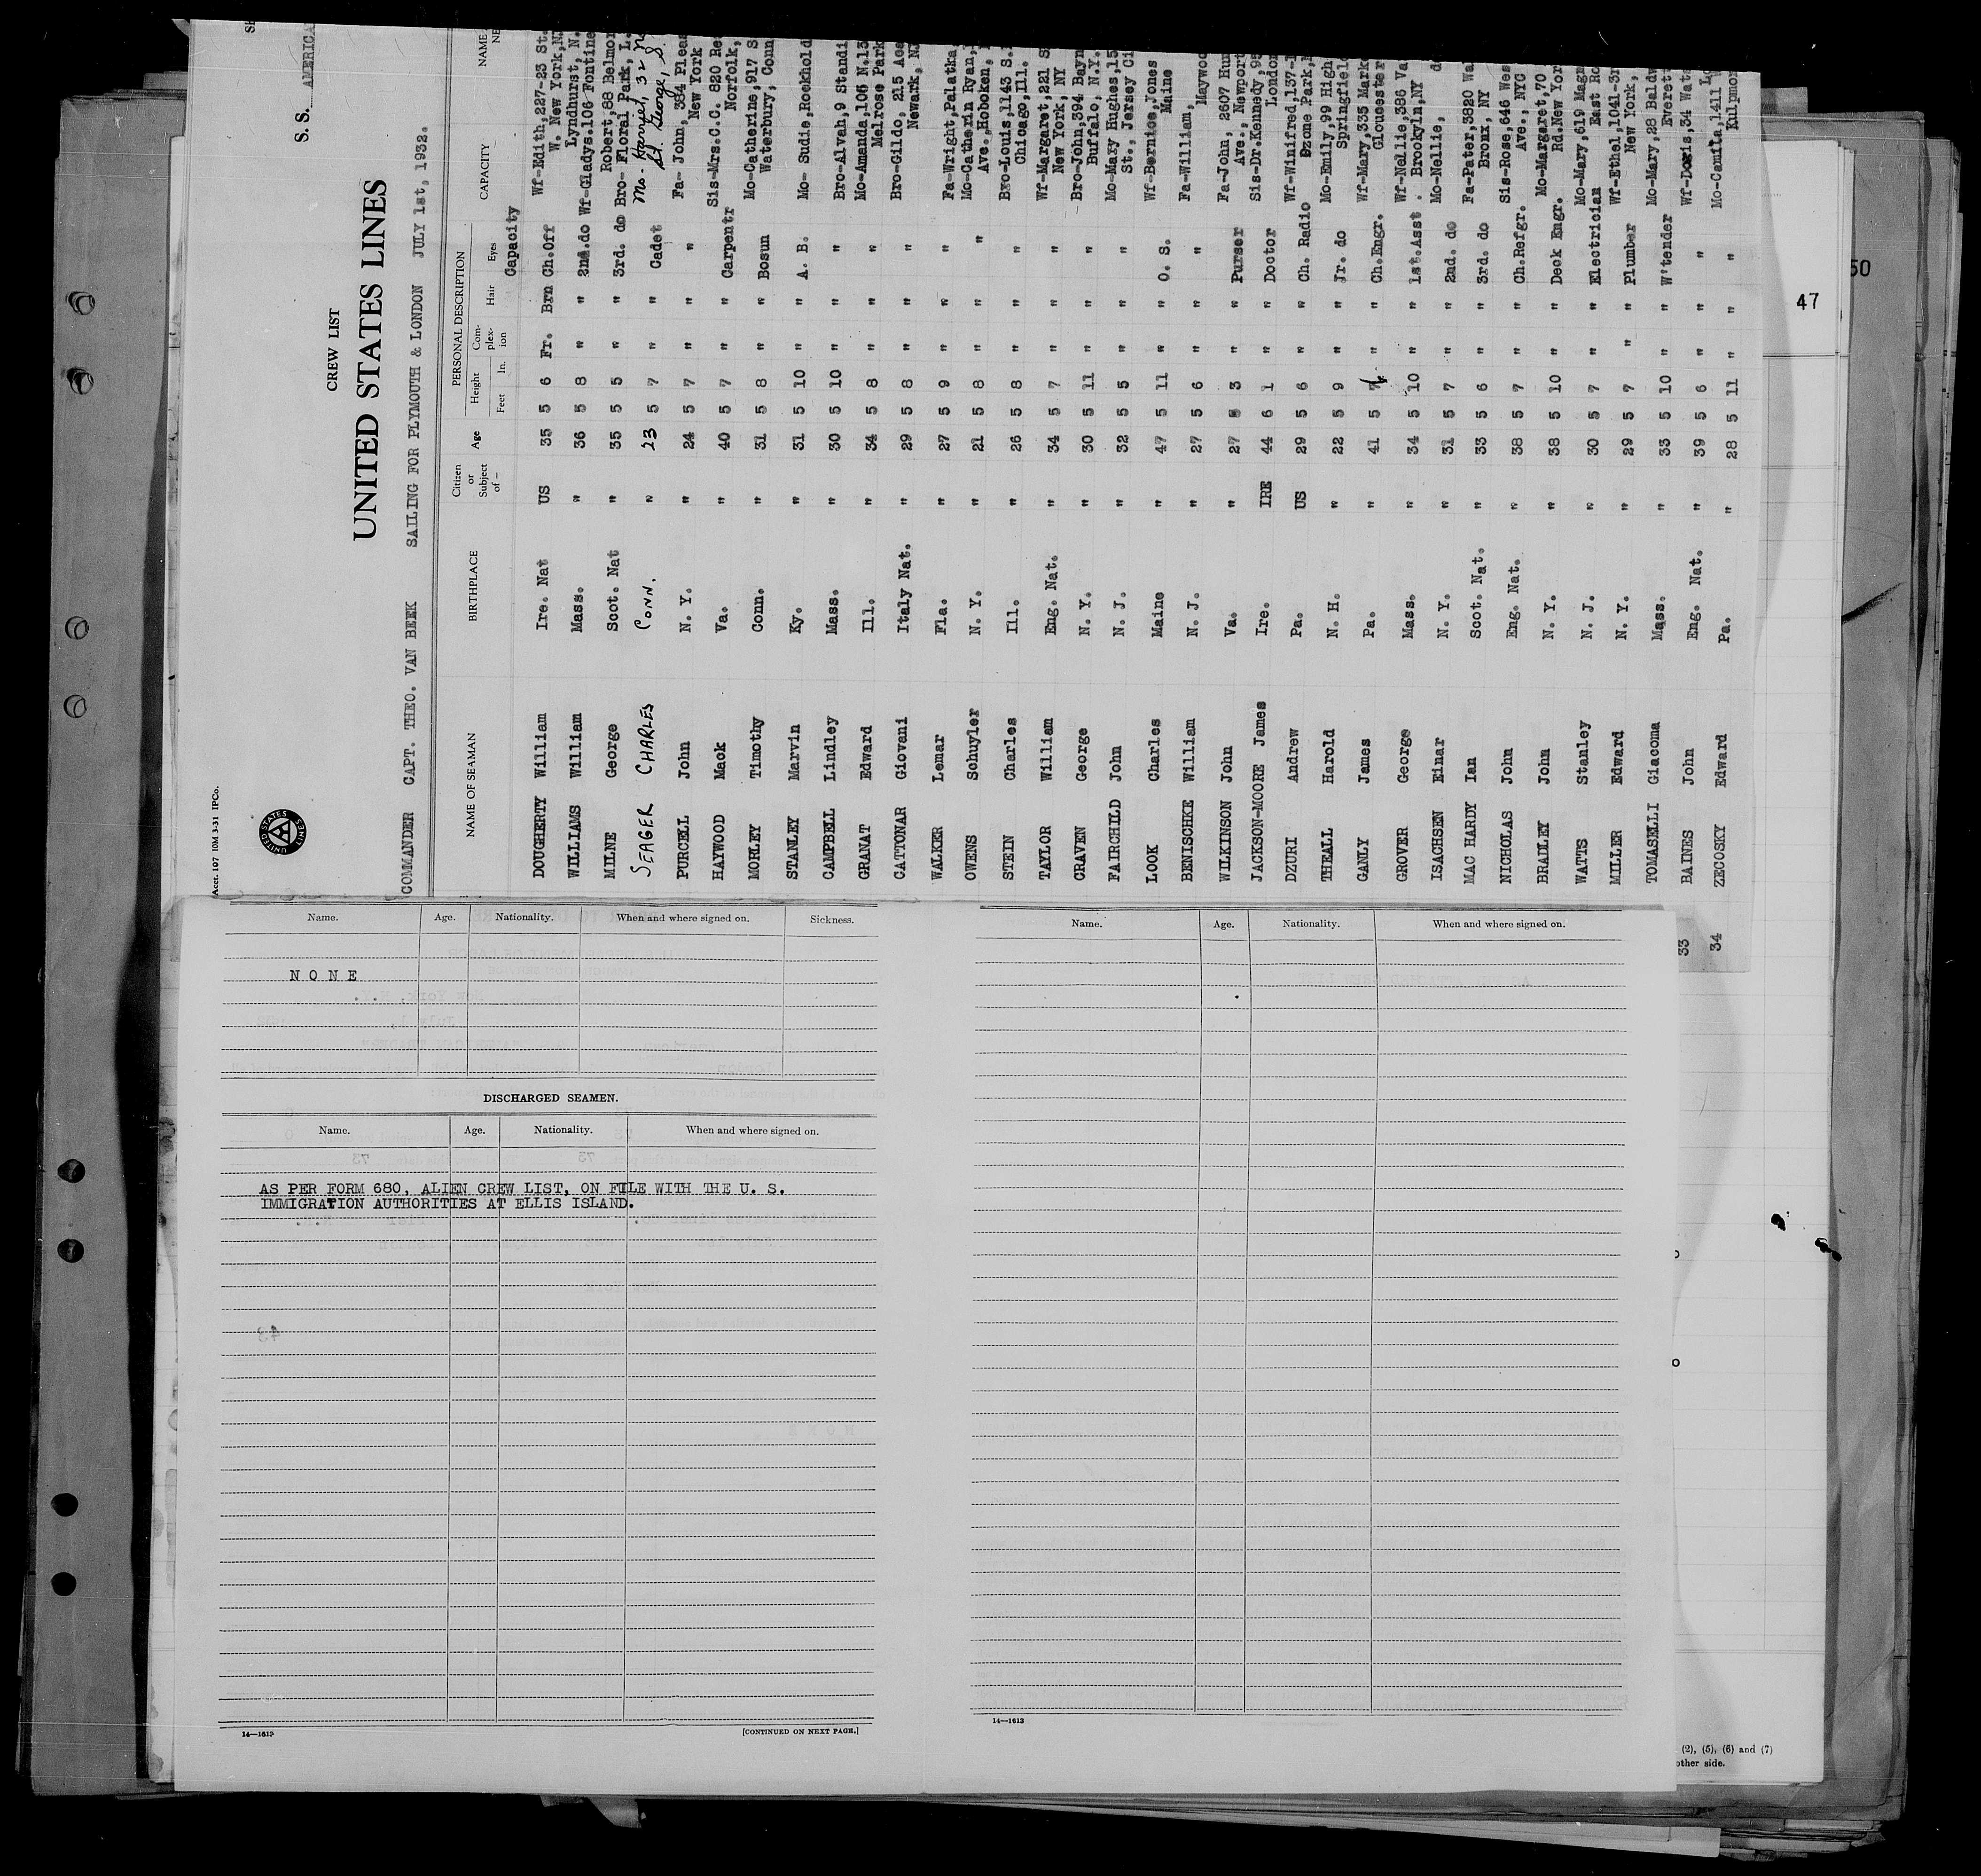 Acct. 107 10M 3-31 IPCo.
UNITED STATES LINES
S. S. AMERICA
CREW LIST
UNITED STATES LINES
COMMANDER CAPT. THEO. VAN BEEK SAILING FOR PLYMOUTH & LONDON JULY 1st, 1932.
NAME OF SEAMAN BIRTHPLACE Citizen or Subject of — Age PERSONAL DESCRIPTION Height Feet In. Com-plex-ion Hair Eyes CAPACITY NAME
Capacity
DOUGHERTY William Ire. Nat US 35 5 6 Fr. Brn Ch.Off Wf-Edith,227-23 St.
W. New York,N
WILLIAMS William Mass. " 36 5 8 " " 2nd.do Wf-Gladys.106 Fontine
Lyndhurst, N.
MILNE George Scot. Nat " 35 5 5 " " 3rd. do Bro- Robert,88 Belmon
Floral Park, L.
SEAGER CHARLES CONN. " 23 5 7 " " Cadet Mo- Harried, 32
St. George, S.
PURCELL John N. Y. " 24 5 7 " " " Fa- John, 384 Pleas
New York
HAYWOOD Mack Va. " 40 5 7 " " Carpentr Sis-Mrs.C.C. 820 Re
Norfolk,
MORLEY Timothy Conn. " 31 5 8 " " Bosun Mo-Catherine,917 S
Waterbury, Conn
STANLEY Marvin Ky. " 31 5 10 " " A. B. Mo- Sudie,Rockhold
CAMPBELL Lindley Mass. " 30 5 10 " " " Bro-Alvah,9 Standi
GRANAT Edward Ill. " 34 5 8 " " " Mo-Amanda,106 N.13
Melrose Park
CATTONAR Giovani Italy Nat. " 29 5 8 " " " Bro-Gildo, 215
Newark, NJ
WALKER Lemar Fla. " 27 5 9 " " " Fa-Wright,Palatka
OWENS Schuyler N. Y. " 21 5 8 " " " Mo-Catherin Ryan,
Ave.,Hoboken,
STEIN Charles Ill. " 26 5 8 " " " Bro-Louis,1143 S.
Chicago,Ill.
TAYLOR William Eng. Nat. " 34 5 7 " " " Wf-Margaret,221 S
New York, NY
CRAVEN George N. Y. " 30 5 11 " " " Bro-John,394 Bayn
Buffalo, N.Y.
FAIRCHILD John N. J. " 32 5 5 " " " Mo-Mary Hughes,15
St., Jersey Ci
LOOK Charles Maine " 47 5 11 " " O. S. Wf-Bernice,Jones
Maine
BENISCHKE William N. J. " 27 5 6 " " " Fa-William,
Maywoo
WILKINSON John Va. " 27 5 3 " " Purser Fa-John, 2607 Hun
Ave., Newport
JACKSON-MOORE James Ire. IRE 44 6 1 " " Doctor Sis-Dr.Kennedy,9
London
DZURI Andrew Pa. US 29 5 6 " " Ch. Radio Wf-Winifred,137-
Ozone Park,
THEALL Harold N. H. " 22 5 9 " " Jr. do Mo-Emily,99 High
Springfiel
GANLY James Pa. " 41 5 7 " " Ch.Engr. Wf-Mary,335 Marke
Gloucester
GROVER George Mass. " 34 5 10 " " 1st.Asst. Wf-Nellie,386 Va
Brooklyn,NY
ISACHSEN Einar N. Y. " 31 5 7 " " 2nd. do Mo-Nellie, do
MAC HARDY Ian Scot. Nat. " 33 5 6 " " 3rd. do Fa-Pater,3820 Wa
Bronx, NY
NICHOLAS John Eng. Nat. " 38 5 7 " " Ch.Refgr. Sis-Rose,646 Wes
Ave., NYC
BRADLEY John N. Y. " 38 5 10 " " Deck Engr. Mo-Margaret,70
Rd.New Yor
WATTS Stanley N. J. " 30 5 7 " " Electrician Mo-Mary,619 Magn
East Ro
MILLER Edward N. Y. " 29 5 7 " " Plumber Wf-Ethel,1041-3r
New York,
TOMASELLI Giacoma Mass. " 33 5 10 " " W'tender Mo-Mary,28 Baldw
Everett
33 BAINES John Eng. Nat. " 39 5 6 " " " Wf-Doris,34 Wat
34 ZECOSKY Edward Pa. " 28 5 11 " " " Mo-Camila,1411
Kulpmon
50
47
Name. Age. Nationality. When and where signed on. Sickness.
NONE
DISCHARGED SEAMEN.
Name. Age. Nationality. When and where signed on.
AS PER FORM 680, ALIEN CREW LIST, ON FILE WITH THE U. S.
IMMIGRATION AUTHORITIES AT ELLIS ISLAND.
14—1613
[CONTINUED ON NEXT PAGE.]
Name. Age. Nationality. When and where signed on.
14—1613
(2), (5), (6) and (7)
other side.